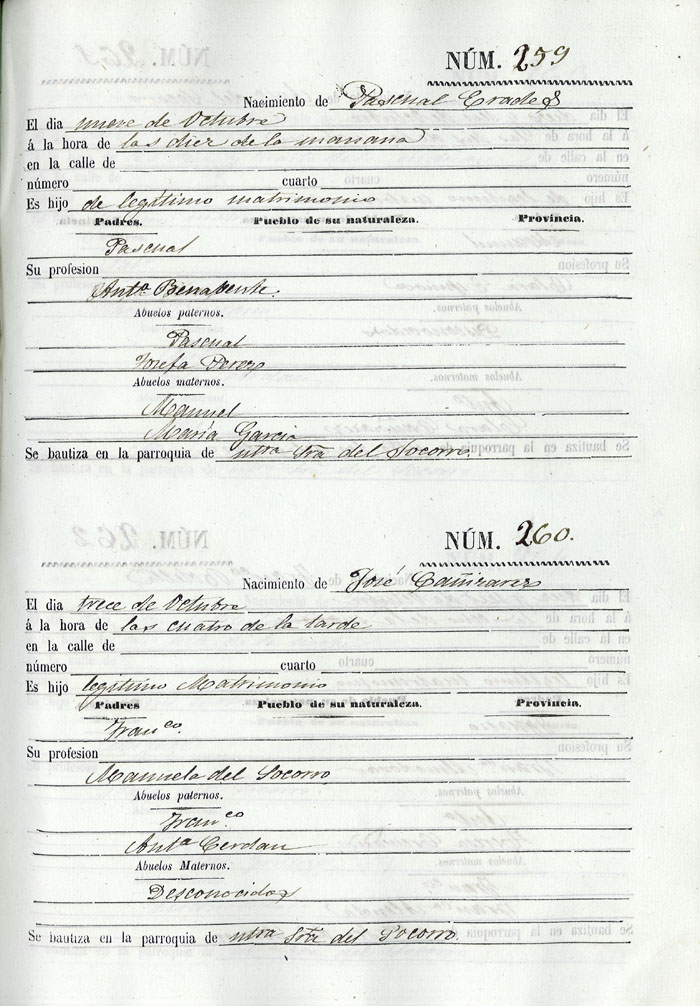 NÚM. 259
Nacimiento de Pascual Crades
El dia nueve de Octubre
á la hora de las diez de la mañana
en la calle de
número cuarto
Es hijo de legítimo matrimonio
Padres. Pueblo de su naturaleza. Provincia.
Pascual
Su profesion
Antª Benavente.
Abuelos paternos.
Pascual
Josefa Perez
Abuelos maternos.
Manuel
María Garcia
Se bautiza en la parroquia de ntra Sra del Socorro.
NÚM. 260.
Nacimiento de José Cañizares
El dia trece de Octubre
á la hora de las cuatro de la tarde
en la calle de
número cuarto
Es hijo legítimo Matrimonio
Padres Pueblo de su naturaleza. Provincia.
Franco.
Su profesion
Manuela del Socorro
Abuelos paternos.
Franco.
Antª Cerdan
Abuelos Maternos.
Desconocidos
Se bautiza en la parroquia de ntra Sra del Socorro.